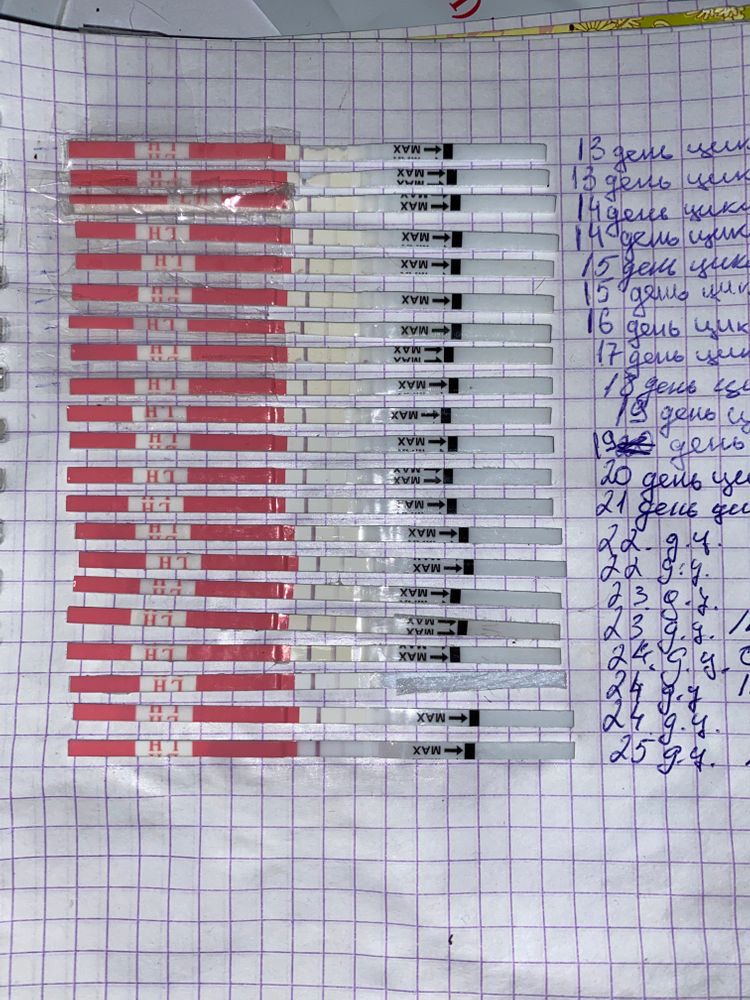 LH MAX 13 день цик
LH MAX 13 день цик
LH MAX 14 день цик
LH MAX 14 день цик
LH MAX 15 день цик
LH MAX 15 день цик
LH MAX 16 день цик
LH MAX 17 день цик
LH MAX 18 день ци
LH MAX 19 день ц
LH MAX 19 день
LH MAX 20 день ци
LH MAX 21 день
LH MAX 22 д.ц.
LH MAX 22 д.ц.
LH MAX 23 д.ц.
LH MAX 23 д.ц.
LH MAX 24 д.ц.
LH 24 д.ц
LH MAX 24 д.ц.
LH MAX 25 д.ц.